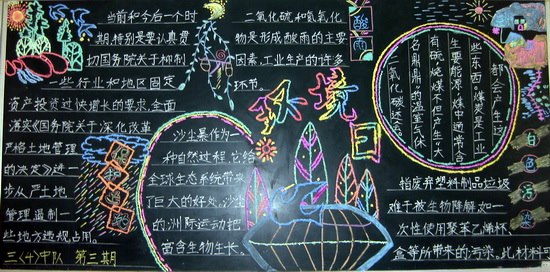 当前和今后一个时
期,特别是要认真贯
切国务院关于抑制
一些行业和地区固定
资产投资过快增长的要求,全面
落实《国务院关于深化改革
严格土地管理
的决定》进一
步从严土地
管理遏制一
些地方违规占用。
三〈十〉中队 第三期
二氧化硫和氮氧化
物是形成酸雨的主要
因素,工业生产的许多
环节。
酸雨
都会产生这
些东西。煤炭是工业
主要能源,煤中通常含
有硫烧煤不但产生"大
名鼎鼎"的温室气体
二氧化碳还会。
环境
沙尘暴
沙尘暴作为一
种自然过程,它给
全球生态系统带来
了巨大的好处。沙尘
的洲际运动把
富含生物生长。
白色污染
指废弃塑料制品垃圾
难于被生物降解,如一
次性使用聚苯乙烯杯、
盒等所带来的污染。此材料可